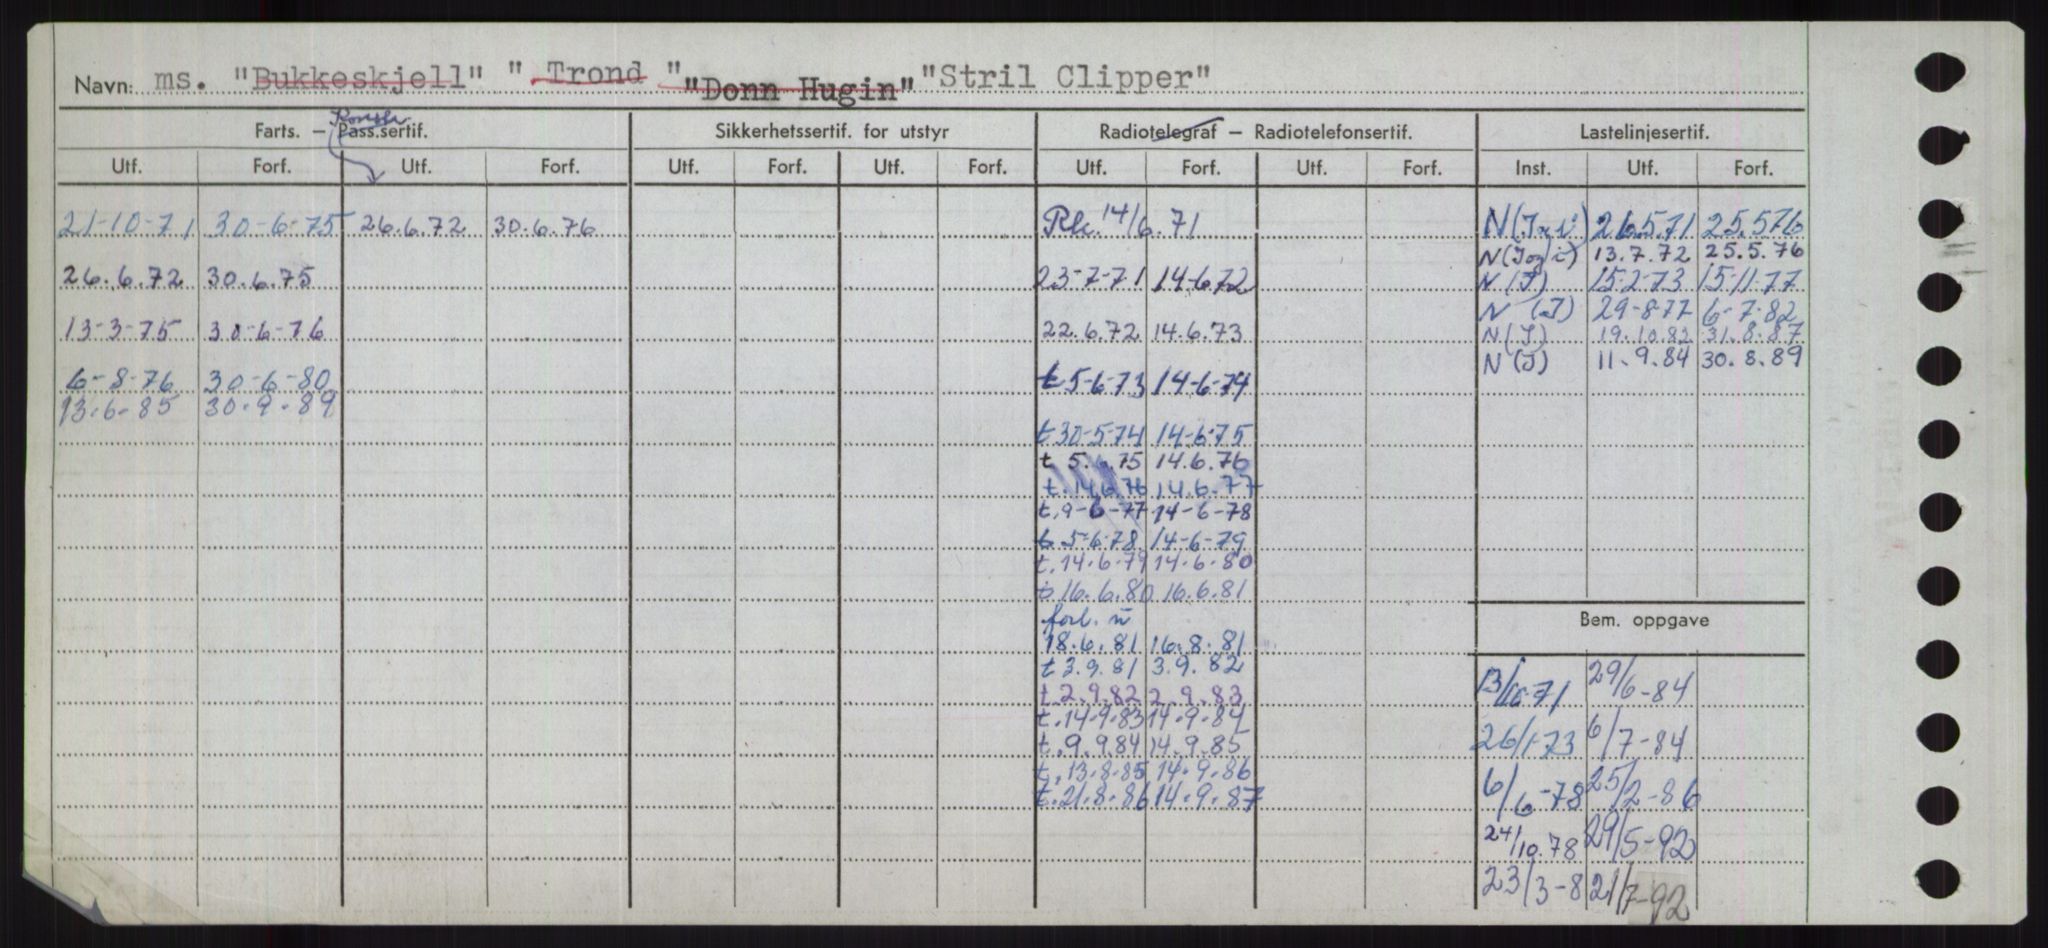 Navn: ms. "Bukkeskjell" "Trond" "Donn Hugin" "Stril Clipper"
Farts. — Pass.sertif.
Sikkerhetssertif. for utstyr
Radiotelegraf — Radiotelefonsertif.
Lastelinjesertif.
Utf. Forf. Utf. Forf. Utf. Forf. Utf. Forf. Utf. Forf. Utf. Forf. Inst. Utf. Forf.
21-10-71 30-6-75 26.6.72 30.6.76
26.6.72 30.6.75
13-3-75 30-6-76
6-8-76 30-6-80
13.6.85 30.9.89
14/6.71
23-7-71 14-6-72
22.6.72 14.6.73
t 5-6-73 14-6-74
t 30-5-74 14-6-75
t 5.6.75 14.6.76
t. 14.6.76 14.6.77
t. 9-6-77 14-6-78
t. 5-6-78 14-6-79
t. 14.6.79 14.6.80
t. 16.6.80 16.6.81
forl. u
18.6.81 16.8.81
t 3.9.81 3.9.82
t 2.9.82 2.9.83
t. 14.9.83 14.9.84
t. 9.9.84 14.9.85
t. 13.8.85 14.9.86
t. 21.8.86 14.9.87
26.5.71 25.5.76
13.7.72 25.5.76
N (J) 15-2-73 15-11-77
N (J) 29-8-77 6-7-82
N (J) 19.10.82 31.8.87
N (J) 11.9.84 30.8.89
Bem. oppgave
13/10-71 29/6-84
26/1-73 6/7-84
6/6-78 25/2-86
24/10.78 29/5-92
23/3-8 21/7-92